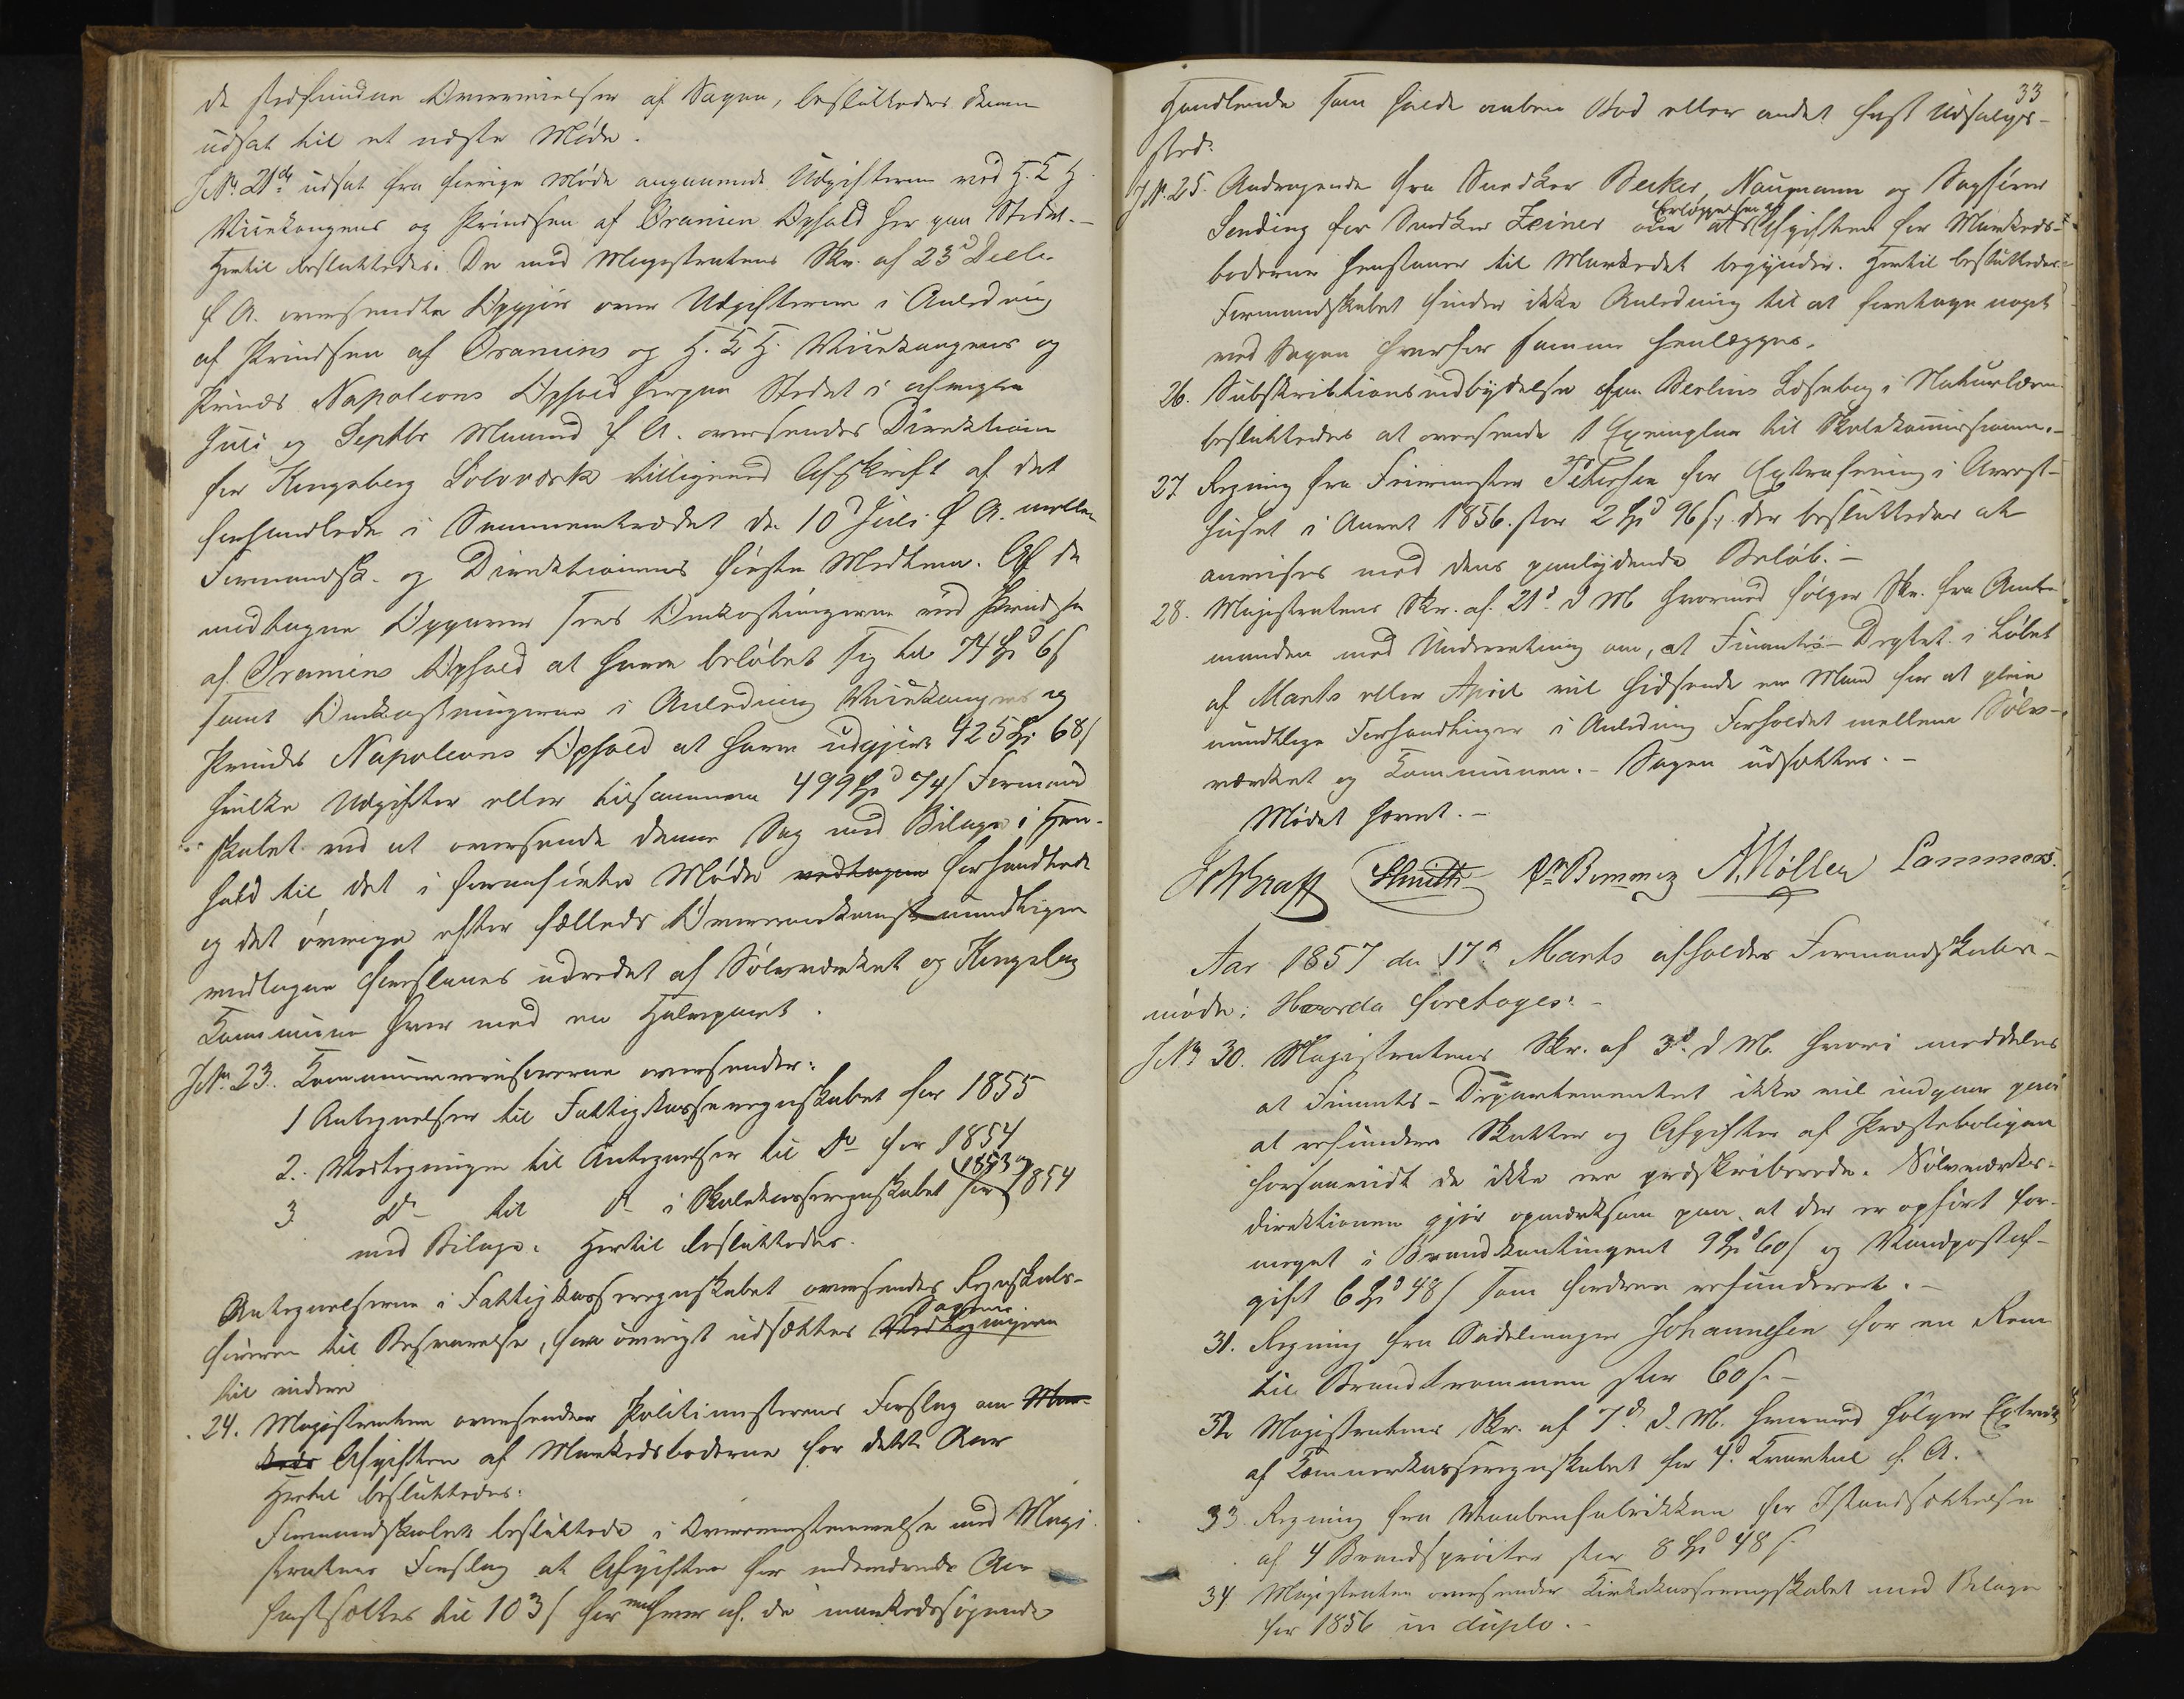 de stedfundne Overveielser af Sagen, besluttedes denne
udsat til et næste Møde.
J.Nr. 21 de udsat fra forrige Møde angaaende Udgifterne ved H. K. H.
Vicekongens og Prindsen af Oranien Ophold her paa Stedet.-
Hertil besluttedes: De med Magistratens Skr. af 23d Decbr.
f. A. oversendte Opgjør over Udgifterne i Anledning
af Prindsen af Oraniens og H. K. H. Vicekongens og
Prinds Napoleons Ophold herpaa Stedet i afvigte
Juli og Septbr Maaned f. A. oversendes Direktionen
for Kongsberg Sølvværk tilligemed Afskrift af det
forhandlede i Sammentrædet den 10d Juli f. A. mellem
Formandsk. og Direktionens første Medlem. Af de
modtagne Opgaver sees Omkostningerne ved Prindsen
af Oraniens Ophold at have beløbet sig til 74 Spd 6 s
samt Omkostningerne i Anledning Vicekongens og
Prinds Napoleons Ophold at have udgjort 425 Spd 68 s
hvilke Udgifter eller tilsammen 499 Spd 74 s Formand
skabet ved at oversende denne Sag med Bilage i Hen-
hold til det i foranførte Møde vedtagne forhandlede
og det øvrige efter fælleds Overeenskomst mundtligen
vedtagne foreslaaes udredet af Sølvværket og Kongsberg
Kommune hver med en Halvpart.
J.Nr. 23. Kommunerevisorerne oversender:
1 Antegnelser til Fattigkasseregnskabet for 1855
2. Vedtegninger til Antegnelser til Do for 1854
3 Do til Do i Skolekasseregnskabet for 1853 og 1854
med Bilage. Hertil besluttedes.
Antegnelserne i Fattigkasseregnskabet oversendes Regnskabs-
føreren til Besvarelse, for øvrigt udsættes Vedtegningerne Sagerne.
til videre
24. Magistraten oversender Politimesterens Forslag om Mar-
keds Afgiften af Markedsboderne for dette Aar
Hertil besluttedes:
Formandskabet besluttede i Overeensstemmelse med Magi
stratens Forslag at Afgiften for indeværende Aar
fastsættes til 103 s for enhver af de markedssøgende
33
Handlende som holde aaben Bod eller andet fast Udsalgs-
sted.
J.Nr. 25. Andragende fra Snedker Becker, Naumann og Sagfører
Lending for Snedker Zeiner om at Erlæggelsen af Afgiften for Markeds-
boderne henstaaer til Markedet begynder. Hertil besluttedes:
Formandskabet finder ikke Anledning til at foretage noget
ved Sagen hvorfor samme henlægges.
26. Subskribtionsindbydelse paa Berlins Læsebog i Naturlæren
besluttedes at oversende 1 Exemplar til Skolekommissionen.-
27 Regning fra Feiermester Petersen for Extrafeining i Arrest-
huset i Aaret 1856. stor 2 Spd 96 s. der besluttedes at
anvises med dens paalydende Beløb.-
28. Magistratens Skr. af 21d d M hvormed følger Skr. fra Amt-
manden med Underretning om, at Finants-Deptet. i Løbet
af Marts eller April vil hidsende en Mand for at pleie
mundtlige Forhandlinger i Anledning Forholdet mellem Sølv-
værket og Kommunen.- Sagen udsættes.-
Mødet hævet.-
Schmidt Bommen N. Møller Lammers.
Aar 1857 den 17d Marts afholdes Formandskabs-
møde: Hvorda foretoges:-
J.Nr. 30. Magistratens Skr. af 3d. d M. hvori meddeles
at Finants-Departementet ikke vil indgaae paa
at refundere Skatter og Afgifter af Præsteboligen
forsaavidt de ikke ere præskriberede. Sølvværks-
direktionen gjør opmærksom paa at der er opført for-
meget i Brandkontingent 9 Spd 60 s og Vandpostaf-
gift 6 Spd 48 s som fordres refunderet.-
31. Regning fra Sadelmager Johannesen for en Rem
til Brandtrommen stor 60 s.-
32 Magistratens Skr. af 7d. d. M. hvormed følger Extrakt
af Kæmnerkasseregnskabet for 4d Kvartal f. A.
33. Regning fra Vaabenfabrikken for Istandsættelse
af 4 Brandsprøiter stor 8 Spd 48 s.
34 Magistraten oversender Kirkekasseregnskabet med Bilage
for 1856 in duplo.-